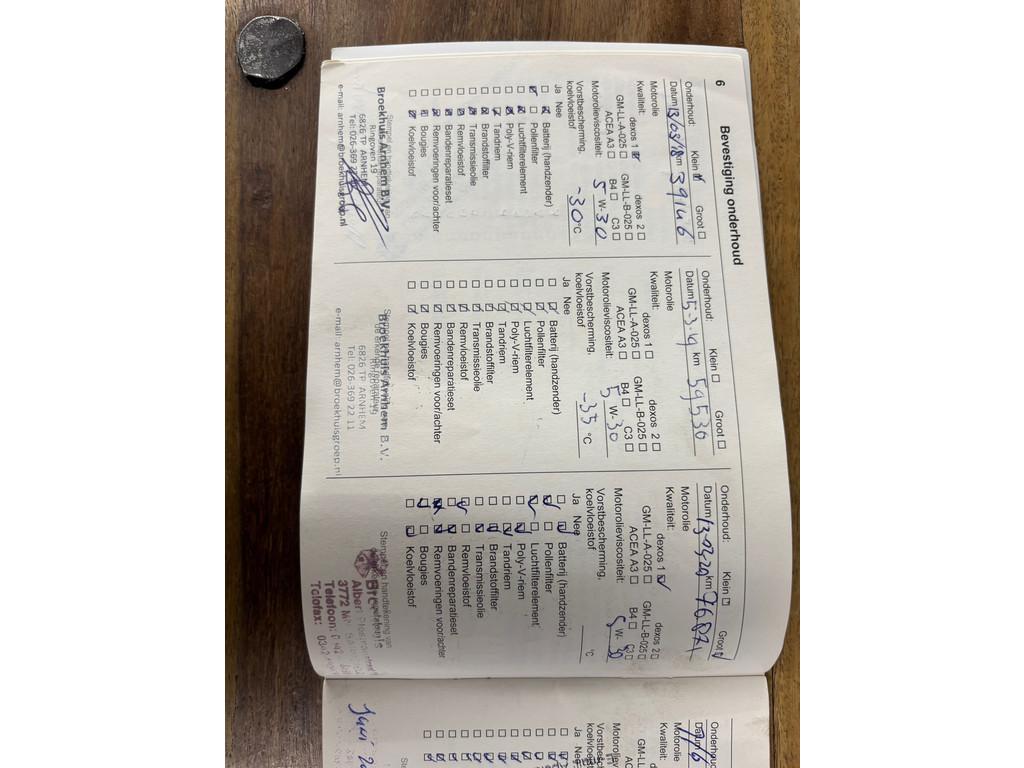 6
Bevestiging onderhoud
Onderhoud: Klein Groot
Datum 13/03/18 km 39146
Motorolie
Kwaliteit: dexos 1 dexos 2
GM-LL-A-025 GM-LL-B-025
ACEA A3 B4 C3
Motorolieviscositeit: 5 W- 30
Vorstbescherming,
koelvloeistof -30 °C
Ja Nee
Batterij (handzender)
Pollenfilter
Luchtfilterelement
Poly-V-riem
Tandriem
Brandstoffilter
Transmissieolie
Remvloeistof
Bandenreparatieset
Remvoeringen voor/achter
Bougies
Koelvloeistof
Broekhuis Arnhem B.V.
Ringoven 19
6826 TP ARNHEM
Tel: 026-369
e-mail: arnhem@broekhuisgroep.nl
Onderhoud: Klein Groot
Datum 5-3-19 km 59530
Motorolie
Kwaliteit: dexos 1 dexos 2
GM-LL-A-025 GM-LL-B-025
ACEA A3 B4 C3
Motorolieviscositeit: 5 W- 30
Vorstbescherming,
koelvloeistof -35 °C
Ja Nee
Batterij (handzender)
Pollenfilter
Luchtfilterelement
Poly-V-riem
Tandriem
Brandstoffilter
Transmissieolie
Remvloeistof
Bandenreparatieset
Remvoeringen voor/achter
Bougies
Koelvloeistof
Broekhuis Arnhem B.V.
6826 TP ARNHEM
Tel: 026-369 22 11
e-mail: arnhem@broekhuisgroep.nl
Onderhoud: Klein Groot
Datum 13-03-20 km 76.871
Motorolie
Kwaliteit: dexos 1 dexos 2
GM-LL-A-025 GM-LL-B-025
ACEA A3 B4 C3
Motorolieviscositeit: 5 W- 30
Vorstbescherming,
koelvloeistof °C
Ja Nee
Batterij (handzender)
Pollenfilter
Luchtfilterelement
Poly-V-riem
Tandriem
Brandstoffilter
Transmissieolie
Remvloeistof
Bandenreparatieset
Remvoeringen voor/achter
Bougies
Koelvloeistof
Stempel en handtekening van
3772
Telefoon:
Telefax:
Motorolie
Ja
Juni